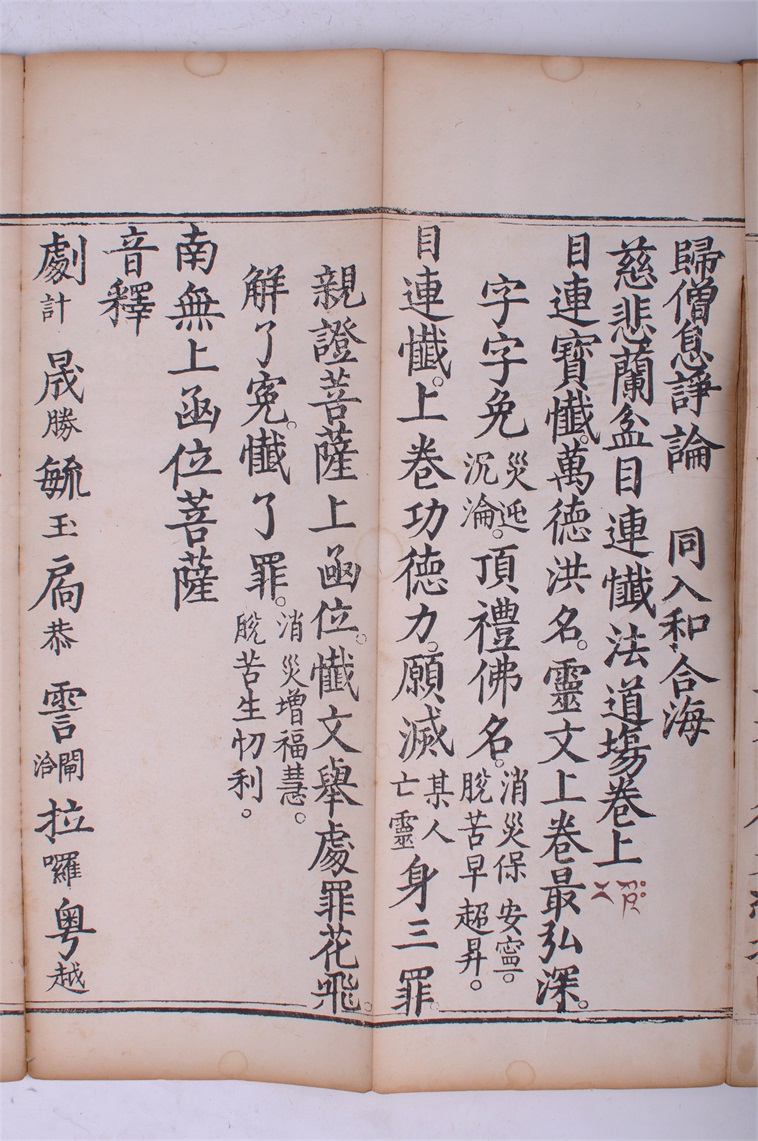 歸僧息諍論　同入和合海
慈悲蘭盆目連懺法道場卷上
目連寶懺。萬德洪名。靈文上卷最弘深。
字字免災迍沉淪。頂禮佛名。消災保安寧。脫苦早超昇。
目連懺。上卷功德力。願滅某人亡靈身三罪。
親證菩薩上凾位。懺文舉處罪花飛。
解了寃。懺了罪。消災增福慧。脫苦生忉利。
南無上凾位菩薩
音釋
劇計　晟勝　毓玉　扃恭　霅閘洽　拉囉　粵越